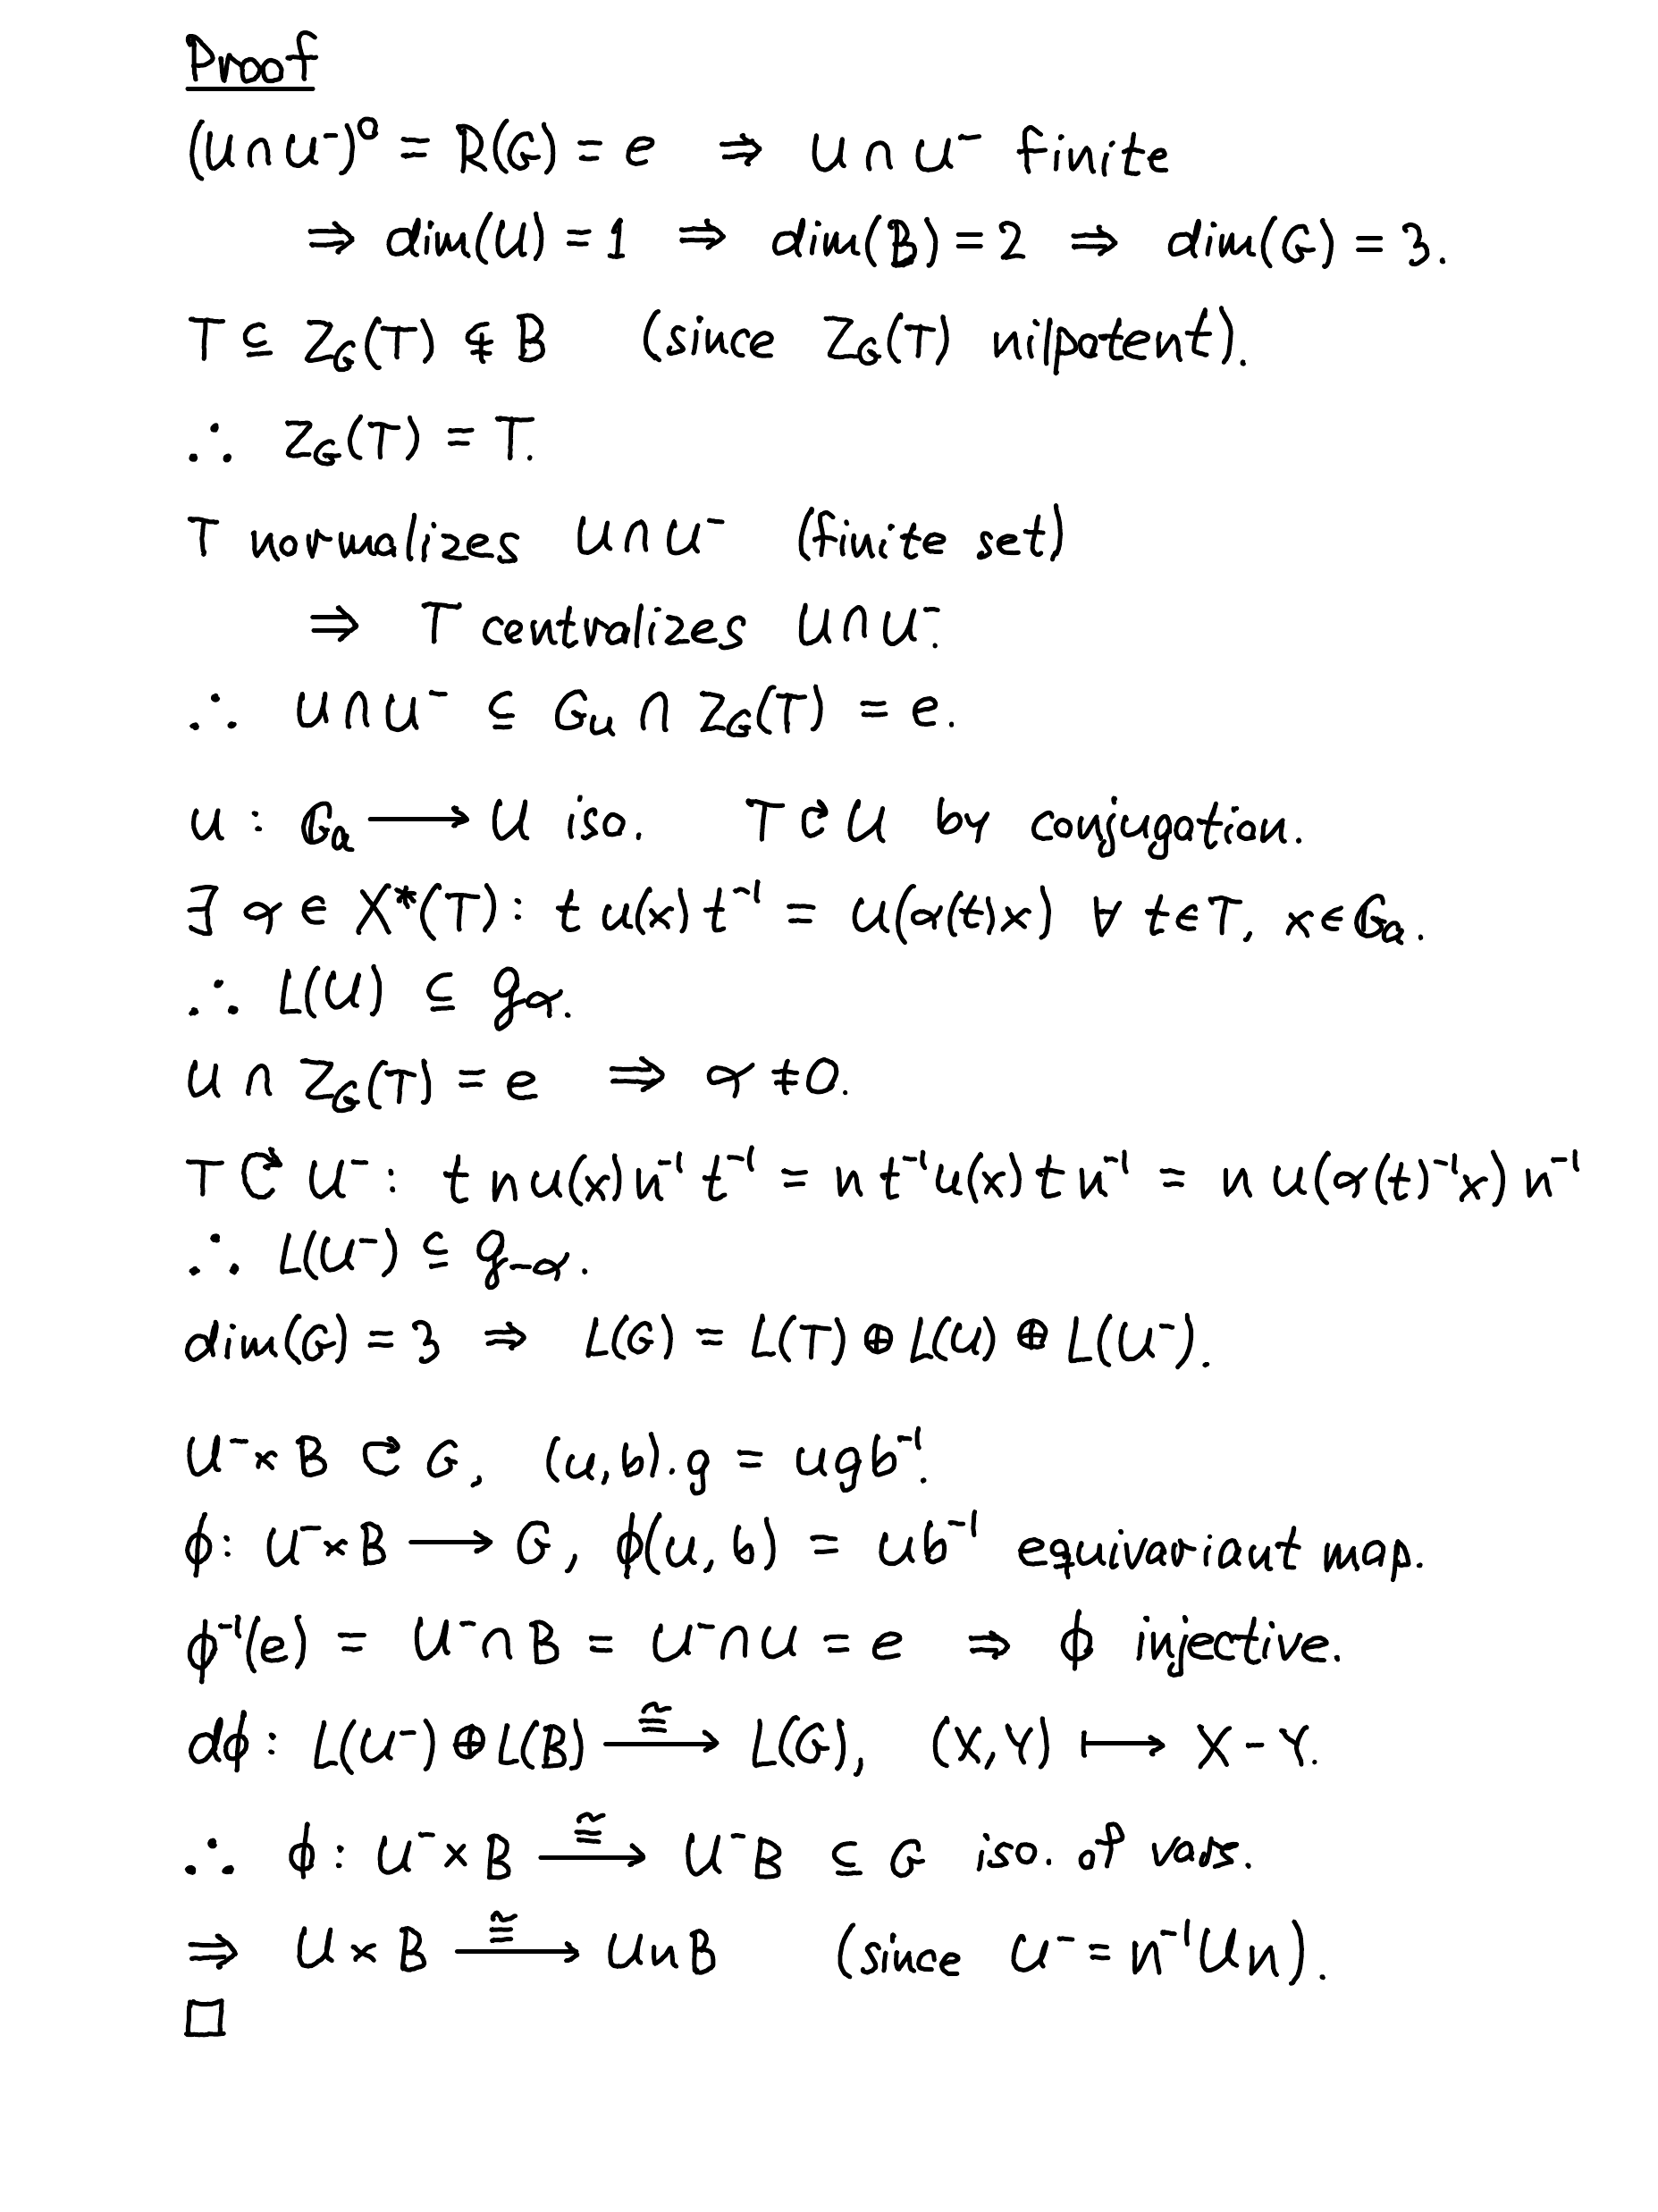 Proof
(U∩U⁻)⁰ = R(G) = e ⇒ U∩U⁻ finite
⇒ dim(U) = 1 ⇒ dim(B) = 2 ⇒ dim(G) = 3.
T ⊆ Z_G(T) ⊊ B (since Z_G(T) nilpotent).
∴ Z_G(T) = T.
T normalizes U∩U⁻ (finite set)
⇒ T centralizes U∩U⁻.
∴ U∩U⁻ ⊆ G_u ∩ Z_G(T) = e.
u : 𝔾_a ⟶ U iso. T ↻ U by conjugation.
∃ α ∈ X*(T) : t u(x) t⁻¹ = u(α(t)x) ∀ t∈T, x∈𝔾_a.
∴ L(U) ⊆ g_α.
U ∩ Z_G(T) = e ⇒ α ≠ 0.
T ↻ U⁻ : t n u(x) n⁻¹ t⁻¹ = n t⁻¹ u(x) t n⁻¹ = n u(α(t)⁻¹x) n⁻¹
∴ L(U⁻) ⊆ g_-α.
dim(G) = 3 ⇒ L(G) = L(T) ⊕ L(U) ⊕ L(U⁻).
U⁻×B ↻ G, (u,b).g = ugb⁻¹.
ϕ: U⁻×B ⟶ G, ϕ(u,b) = ub⁻¹ equivariant map.
ϕ⁻¹(e) = U⁻∩B = U⁻∩U = e ⇒ ϕ injective.
dϕ : L(U⁻) ⊕ L(B) ≅⟶ L(G), (X,Y) ⟼ X - Y.
∴ ϕ : U⁻×B ≅⟶ U⁻B ⊆ G iso. of vars.
⇒ U×B ≅⟶ UnB (since U⁻ = n⁻¹Un).
□